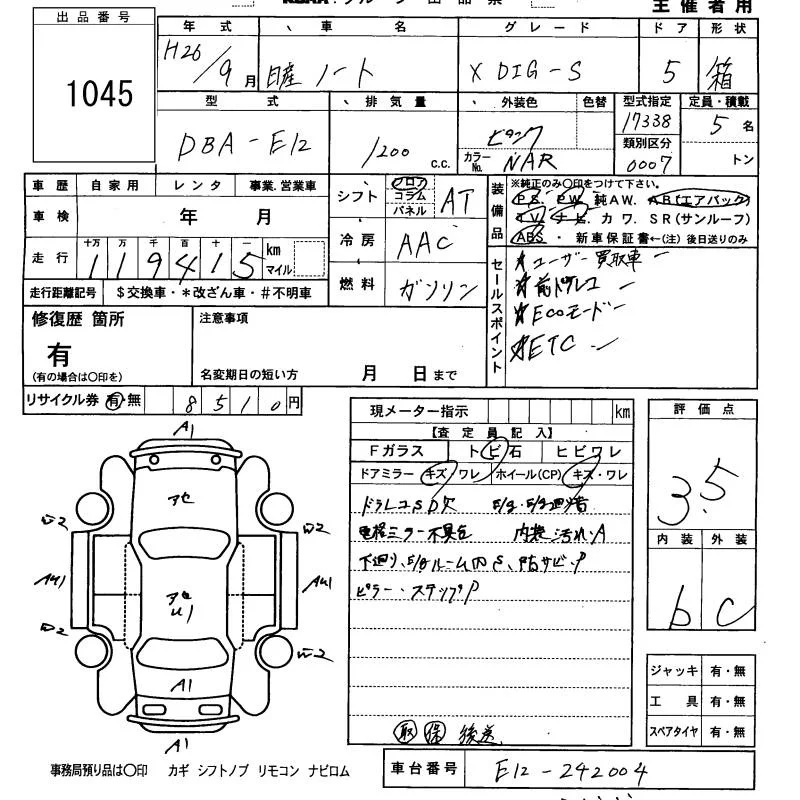 主催者用
出品番号 1045
年式 車名 グレード ドア 形状
H26/9月 日産 ノート X DIG-S 5 箱
型式 排気量 外装色 色替 型式指定 定員・積載
DBA-E12 1200 c.c. 17338 5名
カラーNo. NAR 類別区分 0007 トン
車歴 自家用 レンタ 事業.営業車
車検 年 月
走行 十万 万 千 百 十 一
119415 km マイル
走行距離記号 $交換車・*改ざん車・#不明車
シフト フロア コラム パネル AT
冷房 AAC
燃料 ガソリン
装備品 ※純正のみ〇印をつけて下さい。
P.S. P.W. 純AW. AB(エアバック)
TV. ナビ. カワ. SR(サンルーフ)
ABS・新車保証書←(注)後日送りのみ
セールスポイント
★ユーザー買取車
★前ドラレコ
★Ecoモード
★ETC
修復歴 箇所
有
(有の場合は〇印を)
注意事項
名変期日の短い方 月 日まで
リサイクル券 有・無 8510円
現メーター指示 km
【査定員記入】
Fガラス トビ石 ヒビワレ
ドアミラー キズ/ワレ ホイール(CP) キズ・ワレ
ドラレコSD欠
電格ミラー不具合 内装汚れ.A
ピラー・ステップP
取 保 後送
評価点
3.5
内装 外装
b C
ジャッキ 有・無
工具 有・無
スペアタイヤ 有・無
A1
アセ
A1
A1
事務局預り品は〇印 カギ シフトノブ リモコン ナビロム
車台番号 E12-242004